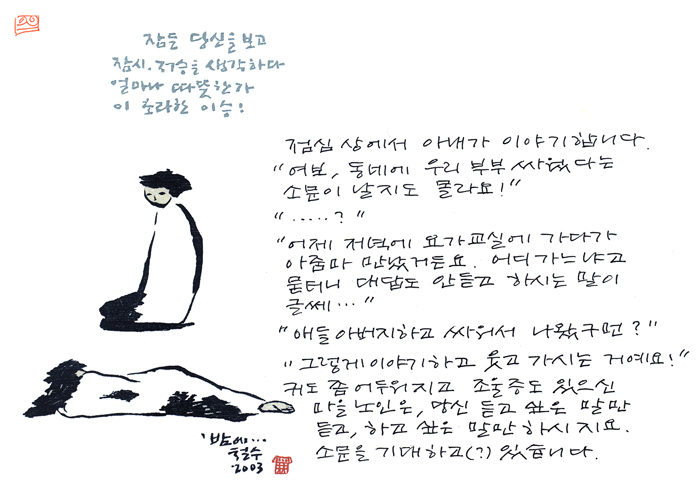 잠든 당신을 보고
잠시. 저승을 생각하다
얼마나 따뜻한가
이 초라한 이승!
점심 상에서 아내가 이야기합니다.
"여보, 동네에 우리 부부 싸웠다는
소문이 날지도 몰라요!"
"·····?"
"어제 저녁에 요가교실에 가다가
아줌마 만났거든요. 어디가느냐고
묻더니 대답도 안듣고 하시는 말이
글쎄···"
"애들아버지하고 싸워서 나왔구먼?"
"그렇게이야기하고 웃고 가시는 거예요!"
귀도 좀 어두워지고 조울증도 있으신
마을 노인은, 당신 듣고 싶은 말만
듣고, 하고 싶은 말만 하시지요.
소문을 기대하고(?) 있습니다.
'밤에···
철수
2003